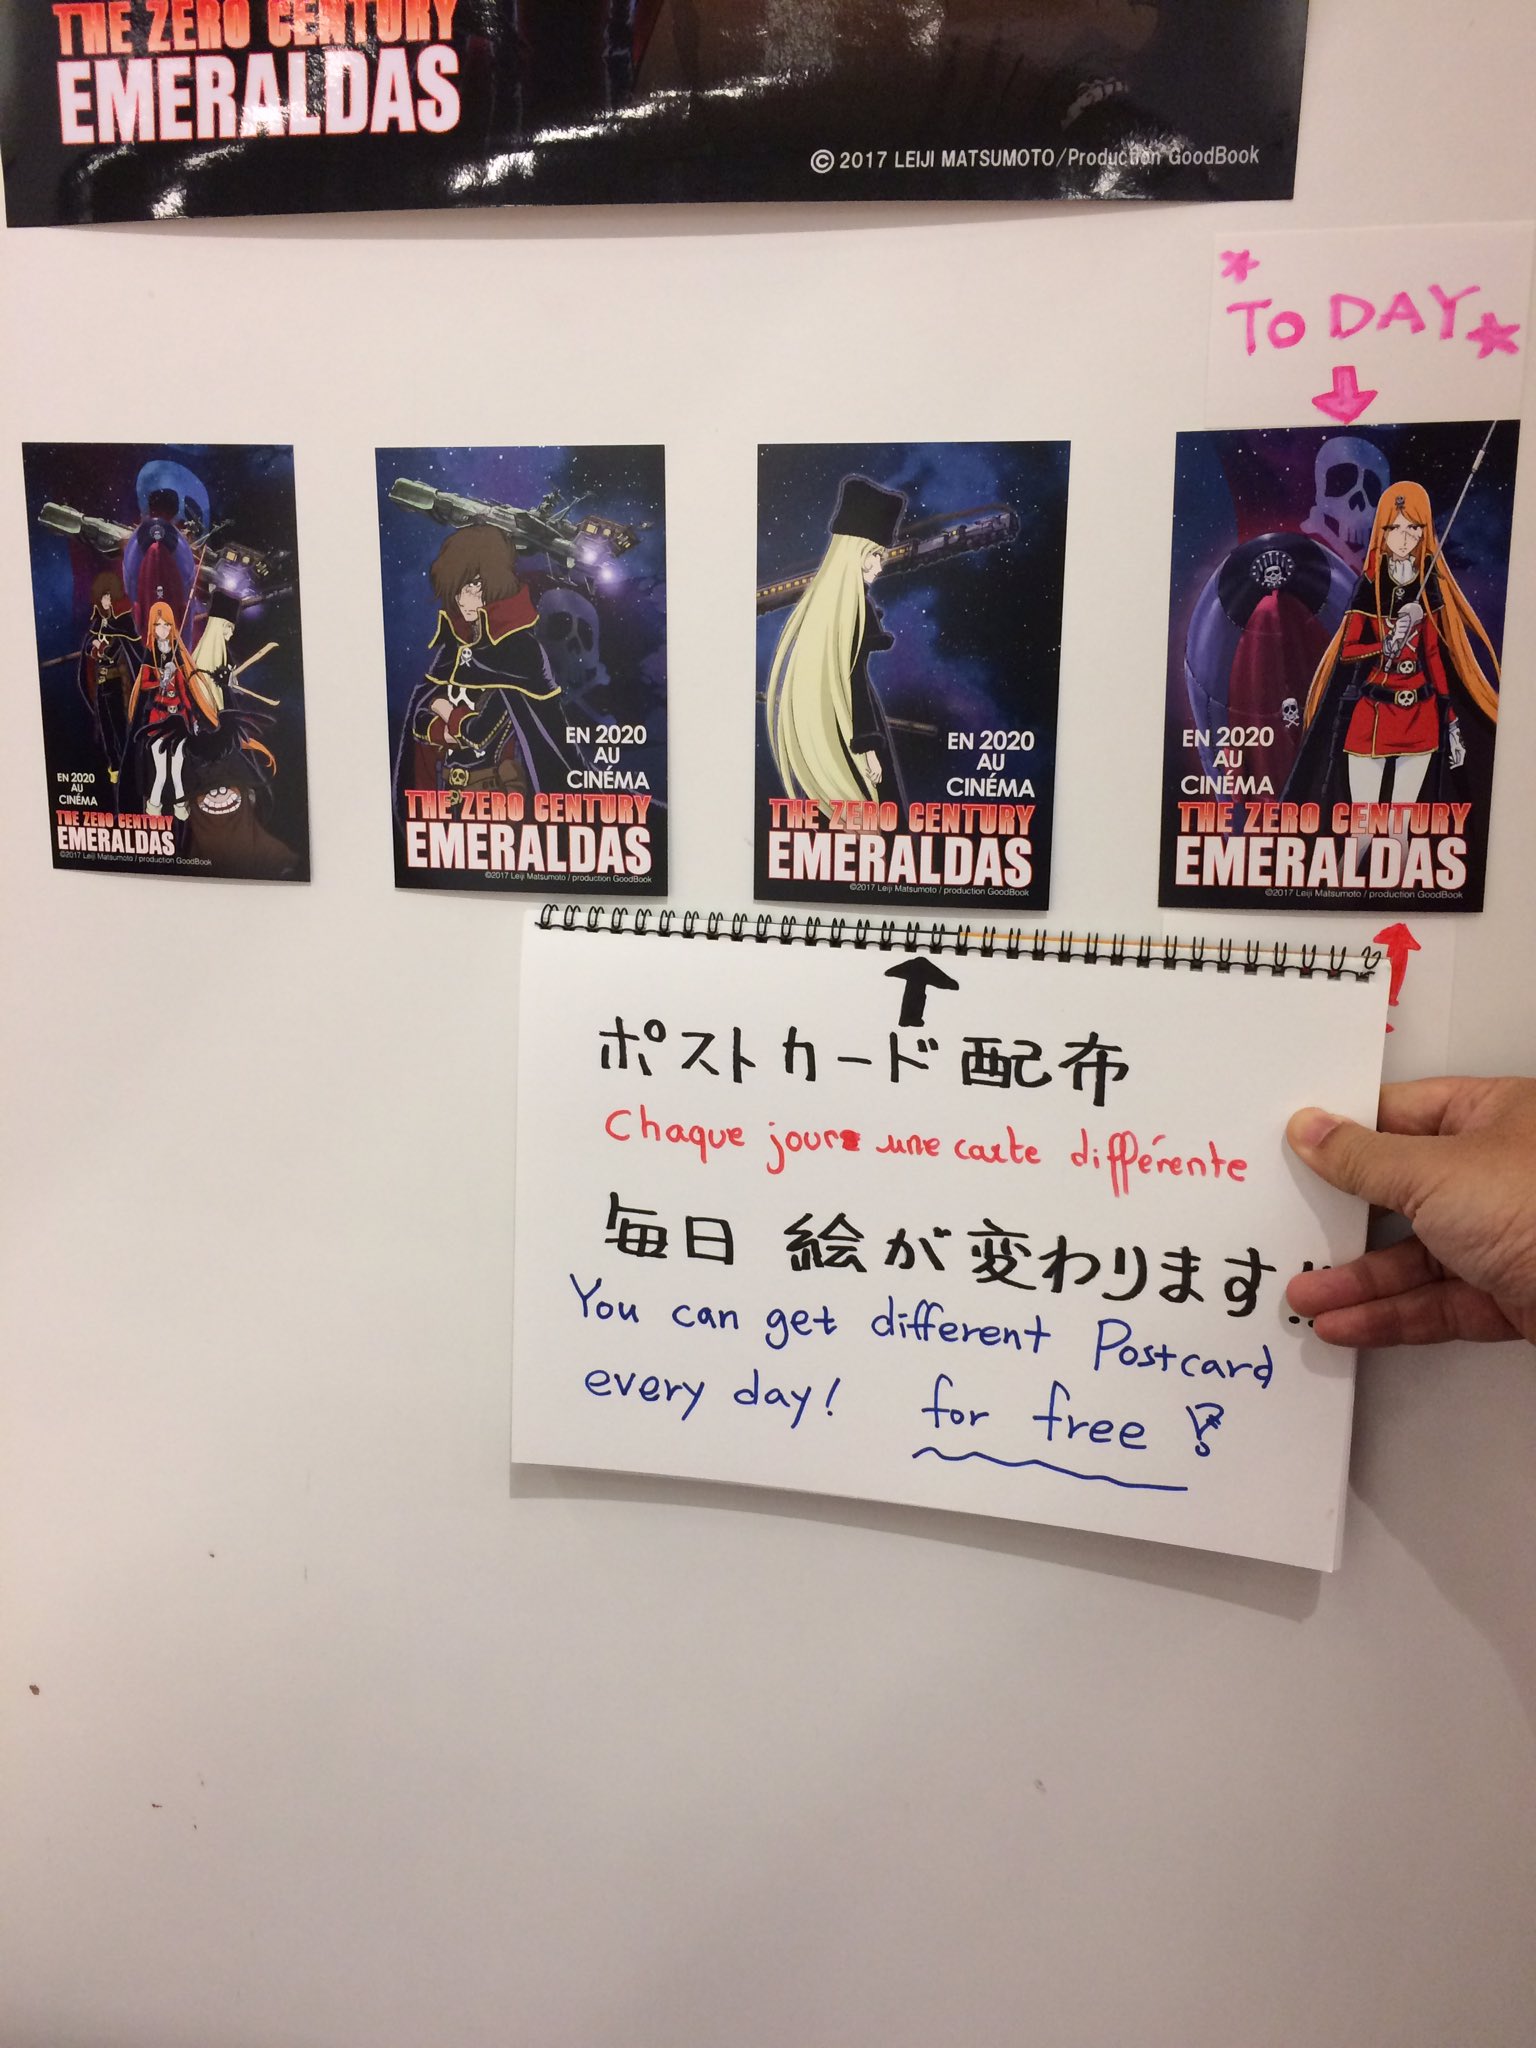 THE ZERO CENTURY
EMERALDAS
© 2017 LEIJI MATSUMOTO/Production GoodBook
TODAY
EN 2020
AU
CINÉMA
THE ZERO CENTURY
EMERALDAS
©2017 Leiji Matsumoto / production GoodBook
EN 2020
AU
CINÉMA
THE ZERO CENTURY
EMERALDAS
©2017 Leiji Matsumoto / production GoodBook
EN 2020
AU
CINÉMA
THE ZERO CENTURY
EMERALDAS
©2017 Leiji Matsumoto / production GoodBook
EN 2020
AU
CINÉMA
THE ZERO CENTURY
EMERALDAS
©2017 Leiji Matsumoto / production GoodBook
ポストカード配布
Chaque jours une carte différente
毎日 絵が変わります!!
You can get different Postcard
every day! for free!